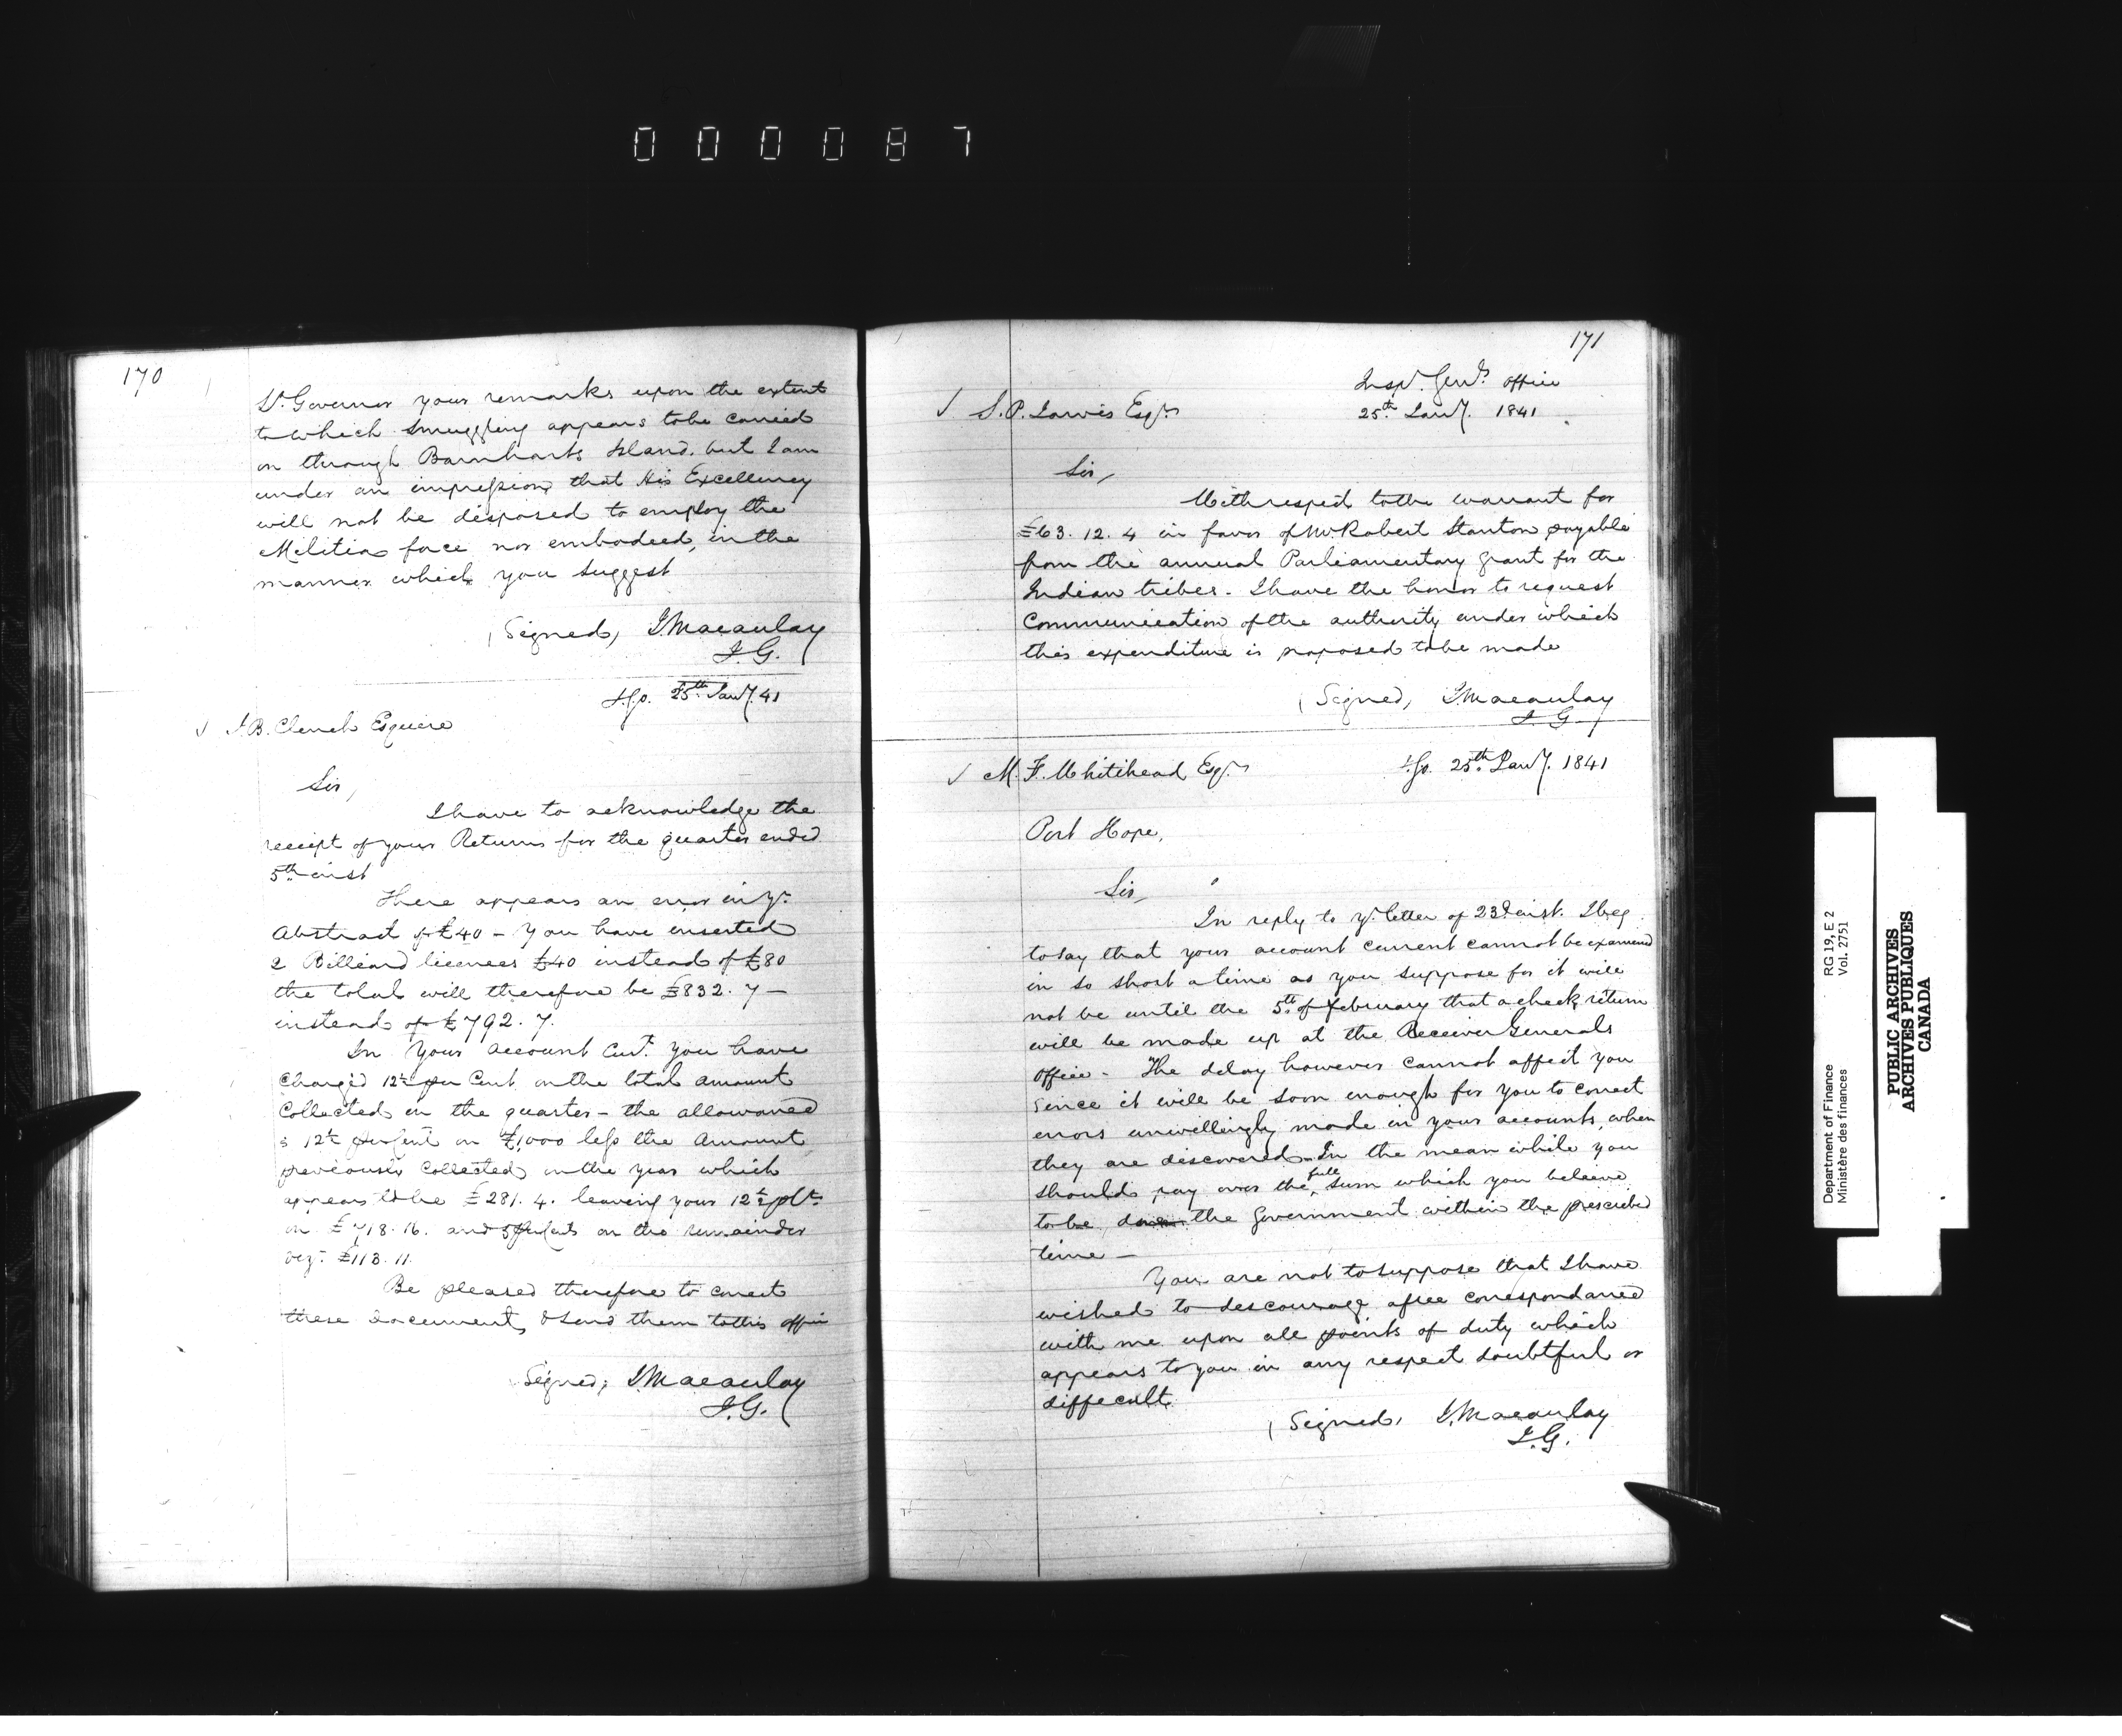 000087
170
Lt. Governor your remarks upon the extent
to which smuggling appears to be carried
on through Barnharts Island. but I am
under an impression that His Excellency
will not be disposed to employ the
Militia force nor embodied, in the
manner which you suggest
(Signed) J Macaulay
I.G.
I.G.O. 25th Jany. 41
J.B. Clench Esquire
Sir,
I have to acknowledge the
receipt of your Returns for the quarter ended
5th inst
There appears an error in yr.
Abstract of £40 - You have inserted
2 Billiard licenses £40 instead of £80
the total will therefore be £832. 7 -
instead of £792. 7.
In your account Curt. you have
charged 12½ per Cent on the total amount
Collected in the quarter - the allowance
is 12½ per Cent on £1000 less the amount
previously Collected in the year which
appears to be £281. 4. leaving your 12½ p Ct.
on £718. 16. and 5 per Cents on the remainder
vizt. £113. 11.
Be pleased therefore to correct
these documents & send them to this office
Signed, J Macaulay
I.G.
171
Inspr. Genls. office
25th Jany. 1841
S. P. Jarvis Esqr.
Sir,
With respect to the warrant for
£63. 12. 4 in favor of Mr. Robert Stanton payable
from the annual Parliamentary grant for the
Indian tribes - I have the honor to request
Communication of the authority under which
this expenditure is proposed to be made
(Signed) J Macaulay
I. G
M. F. Whitehead Esqr.
I.G.O. 25th Jany. 1841
Port Hope,
Sir,
In reply to yr. letter of 23d inst. I beg
to say that your account current cannot be examined
in so short a time as you suppose for it will
not be until the 5th. of February that a check return
will be made up at the Receiver Generals
office - The delay however cannot affect you
since it will be soon enough for you to correct
errors unwillingly made in your accounts, when
they are discovered - In the mean while you
should pay over the full sum which you believe
to be due the Government within the prescribed
time -
You are not to suppose that I have
wished to descourage a free correspondance
with me upon all points of duty which
appears to you in any respect doubtful or
difficult
(Signed, J. Macaulay
I.G.
Department of Finance
Ministère des finances
RG 19, E 2
Vol. 2751
PUBLIC ARCHIVES
ARCHIVES PUBLIQUES
CANADA